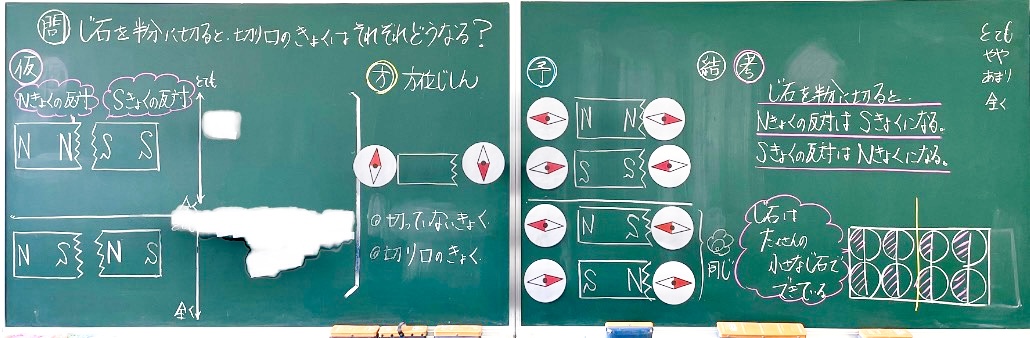 問 じ石を半分に切ると、切り口のきょくはそれぞれどうなる？
仮
Nきょくの反対 Sきょくの反対
とても
N N S S
N S N S
全く
方 方位じしん
◎切っていないきょく
◎切り口のきょく
予
N N
S S
N S
S N
同じ
結 考
じ石を半分に切ると、
Nきょくの反対は Sきょくになる。
Sきょくの反対は Nきょくになる。
じ石は
たくさんの
小さなじ石で
できている
とても
やや
あまり
全く